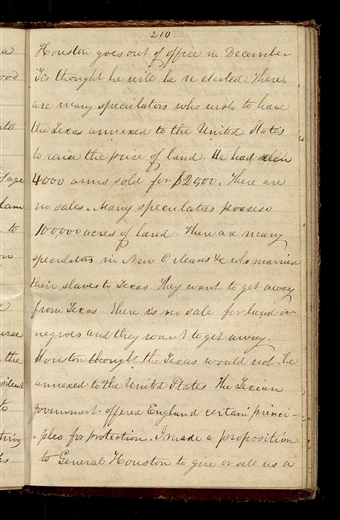 210
Houston goes out of office in December
Tis thought he will be re elected. There
are many speculators who wish to have
the Texas annexed to the United States
to raise the price of land. He had seen
4000 acres sold for $2500. There are
no sales. Many speculators possess
100000 acres of land. There are many
speculators in New Orleans &c who married
their slaves to Texas. They want to get away
from Texas. There is no sale for land or
negroes and they want to get away.
Houston thought the Texas would not be
annexed to the United States. The Texian
government offered England certain princi-
-ples for protection. I made a proposition
to General Houston to give or sell us a